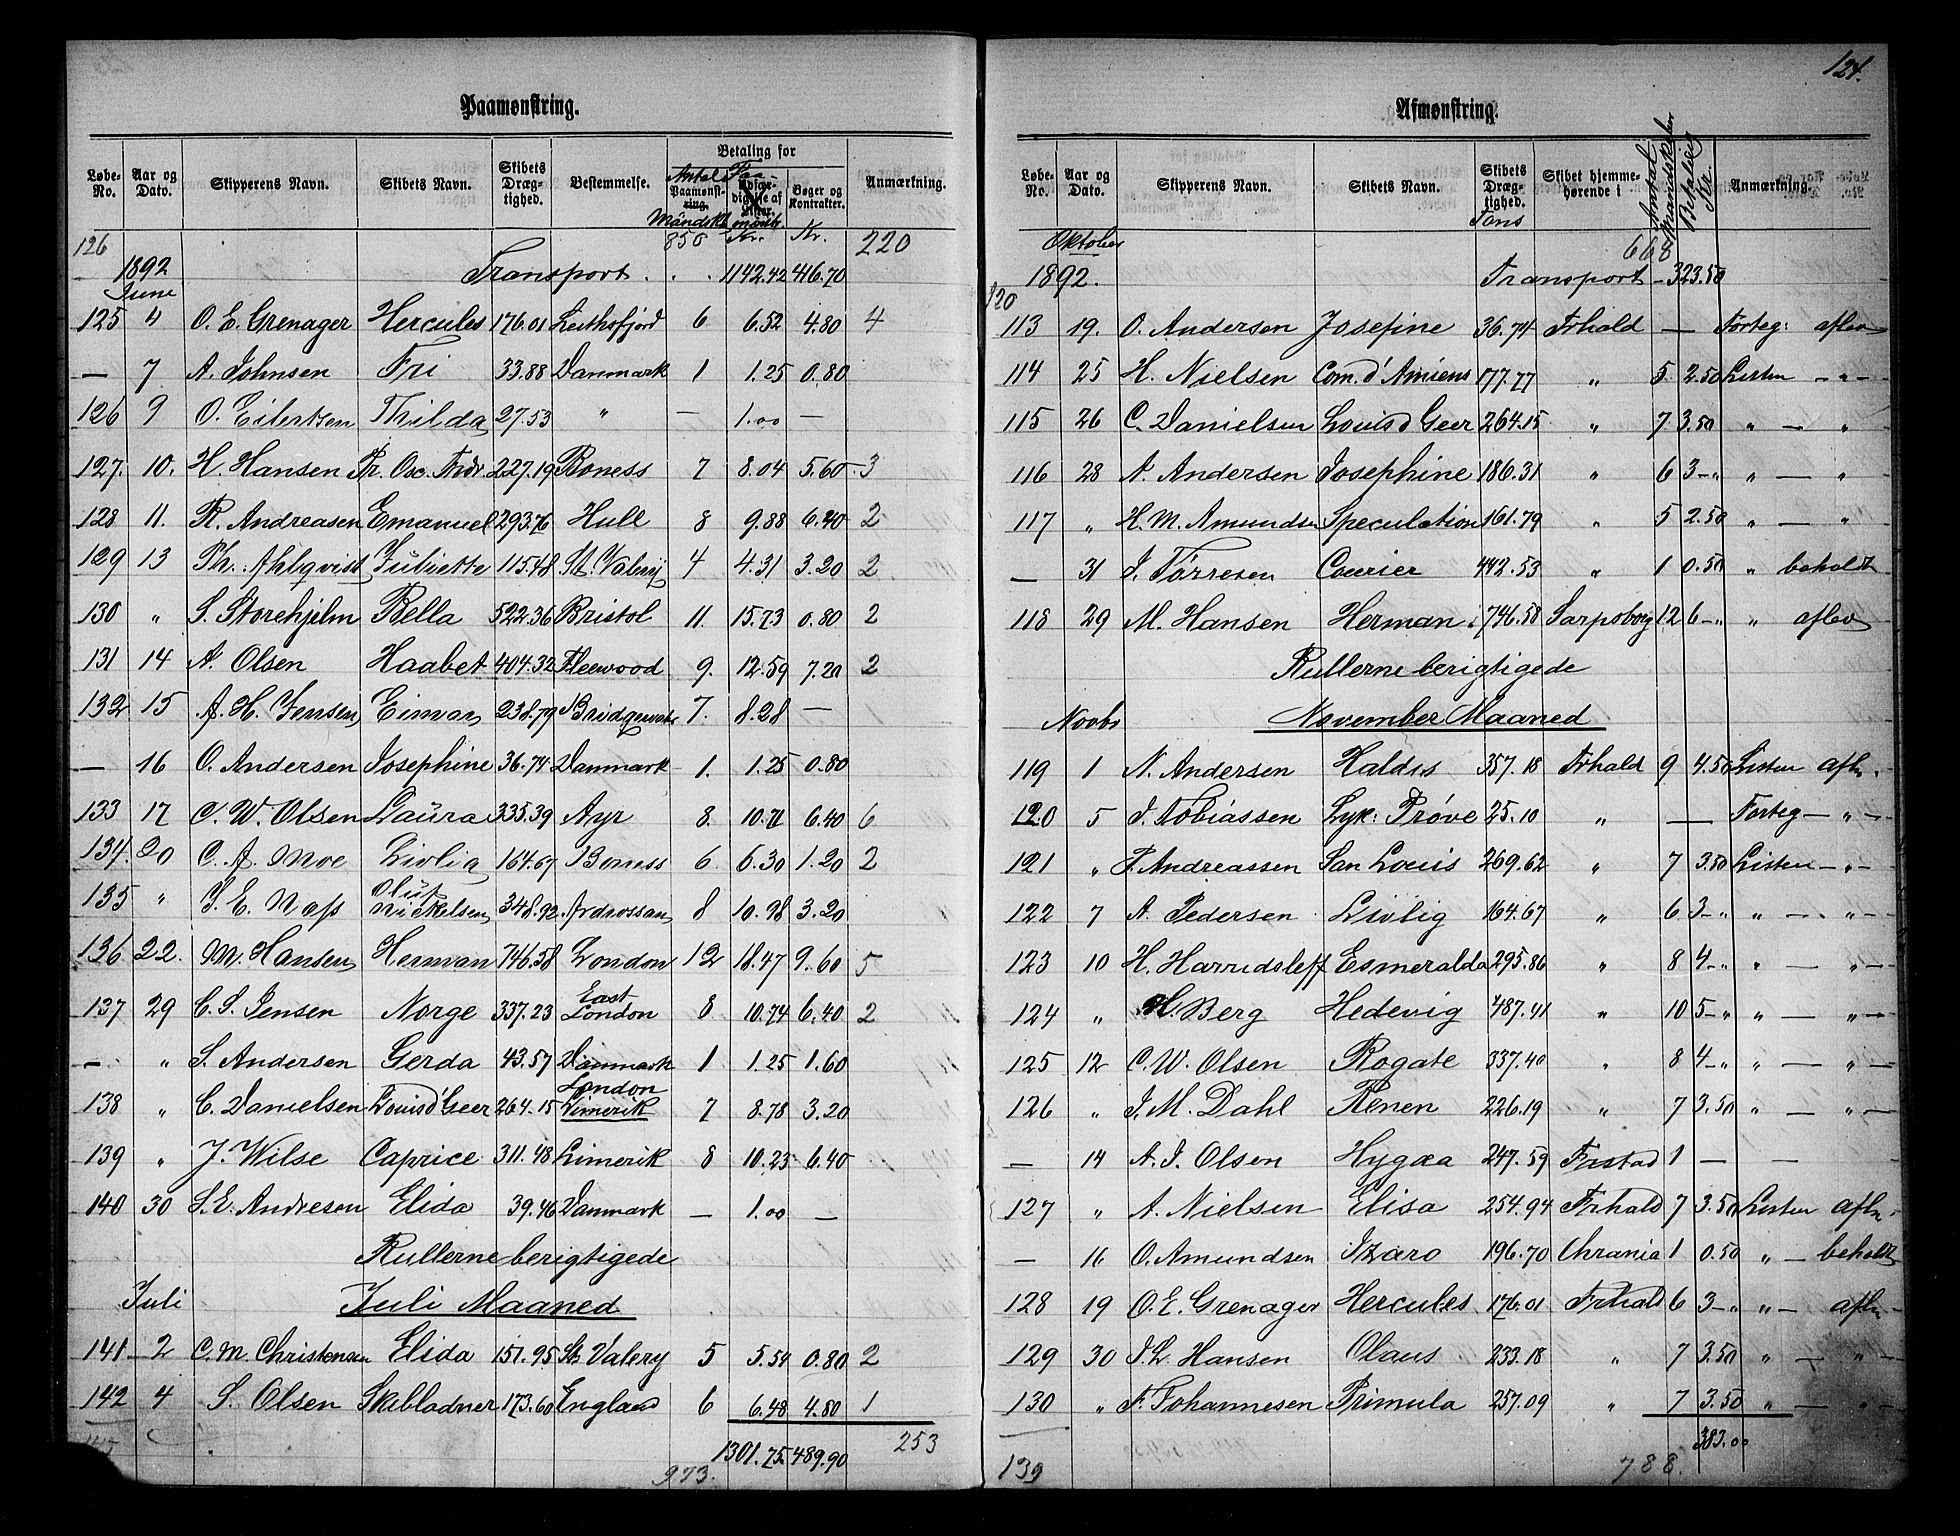 Paamønstring.
Løbe-No. Aar og Dato. Skipperens Navn. Skibets Navn. Skibets Dræg-tighed. Bestemmelse. Betaling for Antal Paamønst-ring. Mandsk. Bøger og Kontrakter. Anmærkning.
126 850 Kr. Kr. 220
1892 Transport . . 1142.42 416.70
June
125 4 O. E. Grenager Hercules 176.01 Leithsfjord 6 6.52 4.80 4
— 7 A. Johnsen Fri 33.88 Danmark 1 1.25 0.80
126 9 O. Eilertsen Thilda 27.53 " — 1.00 —
127. 10. H. Hansen Pr. Osc. Fredr. 227.19 Boness 7 8.04 5.60 3
128 11. R. Andreasen Emanuel 293.76 Hull 8 9.88 6.40 2
129 13 Th. Ahlqvist Juliette 115.48 St. Valery 4 4.31 3.20 2
130 " S. Storehjelm Bella 522.36 Bristol 11. 15.73 0.80 2
131 14 A. Olsen Haabet 404.32 Fleewood 9. 12.59 7.20 2
132 15 A. H. Jensen Eimar 238.79 Bridgewate 7. 8.28 —
— 16 O. Andersen Josephine 36.74 Danmark 1. 1.25 0.80
133 17 C. W. Olsen Laura 335.39 Ayr 8. 10.71 6.40 6
134. 20 C. A. Moe Livlig 164.67 Boness 6. 6.30 1.20 2
135 " J. E. Nass Oluf Nickelsen 348.92 Ardrossan 8 10.98 3.20
136 22. M. Hansen Herman 746.58 London 12 18.47 9.60 5
137 29 C. S. Jensen Norge 337.23 East London 8 10.74 6.40 2
— " S. Andersen Gerda 43.57 Danmark 1 1.25 1.60
138 " C. Danielsen Louis d'Geer 264.15 London Limerik 7 8.78 3.20
139 " J. Wilse Caprice 311.48 Limerik 8 10.23 6.40
140 30 S. E. Andresen Elida 39.46 Danmark — 1.00 —
Rullerne berigtigede
Juli Juli Maaned
141 2 C. M. Christensen Elida 151.95 St. Valery 5 5.54 0.80 2
142 4 S. Olsen Skibladner 173.60 England 6 6.48 4.80 1
973. 1301.75 489.90 253
124.
Afmønstring.
Løbe-No. Aar og Dato. Skipperens Navn. Skibets Navn. Skibets Dræg-tighed. Tons Skibet hjemme-hørende i Antal Mandskaber Betaling Kr. Anmærkning.
Oktober 668
1892. Transport — 323.50
120
113 19. O. Andersen Josefine 36.74 Frhald — Forteg: aflev
114 25 H. Nielsen Com. d'Amiens 177.77 " 5 2.50 Listen — " —
115 26 C. Danielsen Louis d Geer 264.15 " 7 3.50 " — "
116 28 A. Andersen Josephine 186.31 " 6 3 — " " — "
117 " H. M. Amundsen Speculation 161.79 " 5 2.50 " — "
— 31 J. Tørresen Courier 442.53 " 1 0.50 " beholdt
118 29 M. Hansen Herman 746.58 Sarpsborg 12 6 — " " aflev
Rullerne berigtigede
Novbr November Maaned
119 1 N. Andersen Haldis 357.18 Frhald 9 4.50 Listen afl.
120 5 J. Tobiassen Lyk: Prøve 25.10 " — Forteg — " —
121 " P. Andreassen San Louis 269.62 " 7 3.50 Listen — " —
122 7 A. Pedersen Livlig 164.67 " 6 3 — " " — " —
123 10 H. Harridsleff Esmeralda 295.86 " 8 4 — " " — " —
124 " H. Berg Hedevig 487.41 " 10 5 — " " — " —
125 12 C. W. Olsen Rogate 337.40 " 8 4 — " " — " —
126 " J. M. Dahl Renen 226.19 " 7 3.50 " — " —
— 14 A. J. Olsen Hygæa 247.59 Frstad 1 — —
127 " A. Nielsen Elisa 254.94 Frhald 7 3.50 Listen afl.
— 16 O. Amundsen Izaro 196.70 Chrania 1 0.50 " — beholdt
128 19 O. E. Grenager Hercules 176.01 Frhald 6 3 — " " — afl.
129 30 J. L. Hansen Olaus 233.18 " 7 3.50 " — " —
130 " F. Johannesen Primula 257.09 " 7 3.50 " — " —
139 788. 383.00